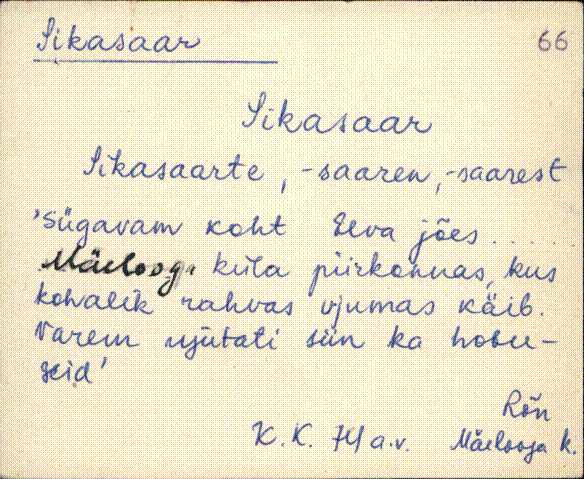 Sikasaar 66
Sikasaar
Sikasaarte, -saaren, -saarest
'Sügavam koht Elva jões.....
Mäelooga küla piirkonnas, kus
kohalik rahvas ujumas käib.
Varem ujutati siin ka hobu-
seid'
Rõn
K. K. 741 a.v. Mäelooga k.